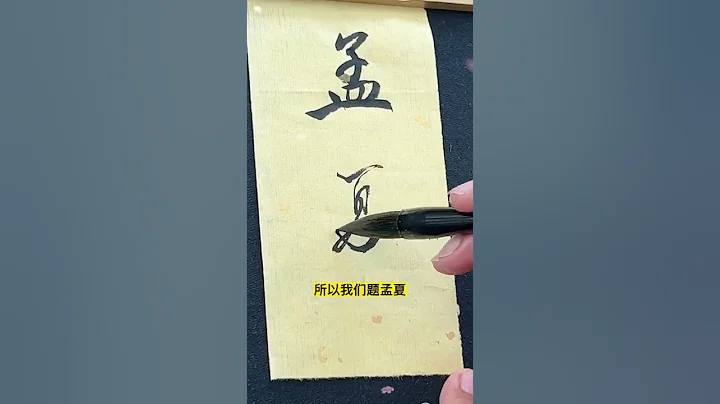 孟
夏
所以我们题孟夏